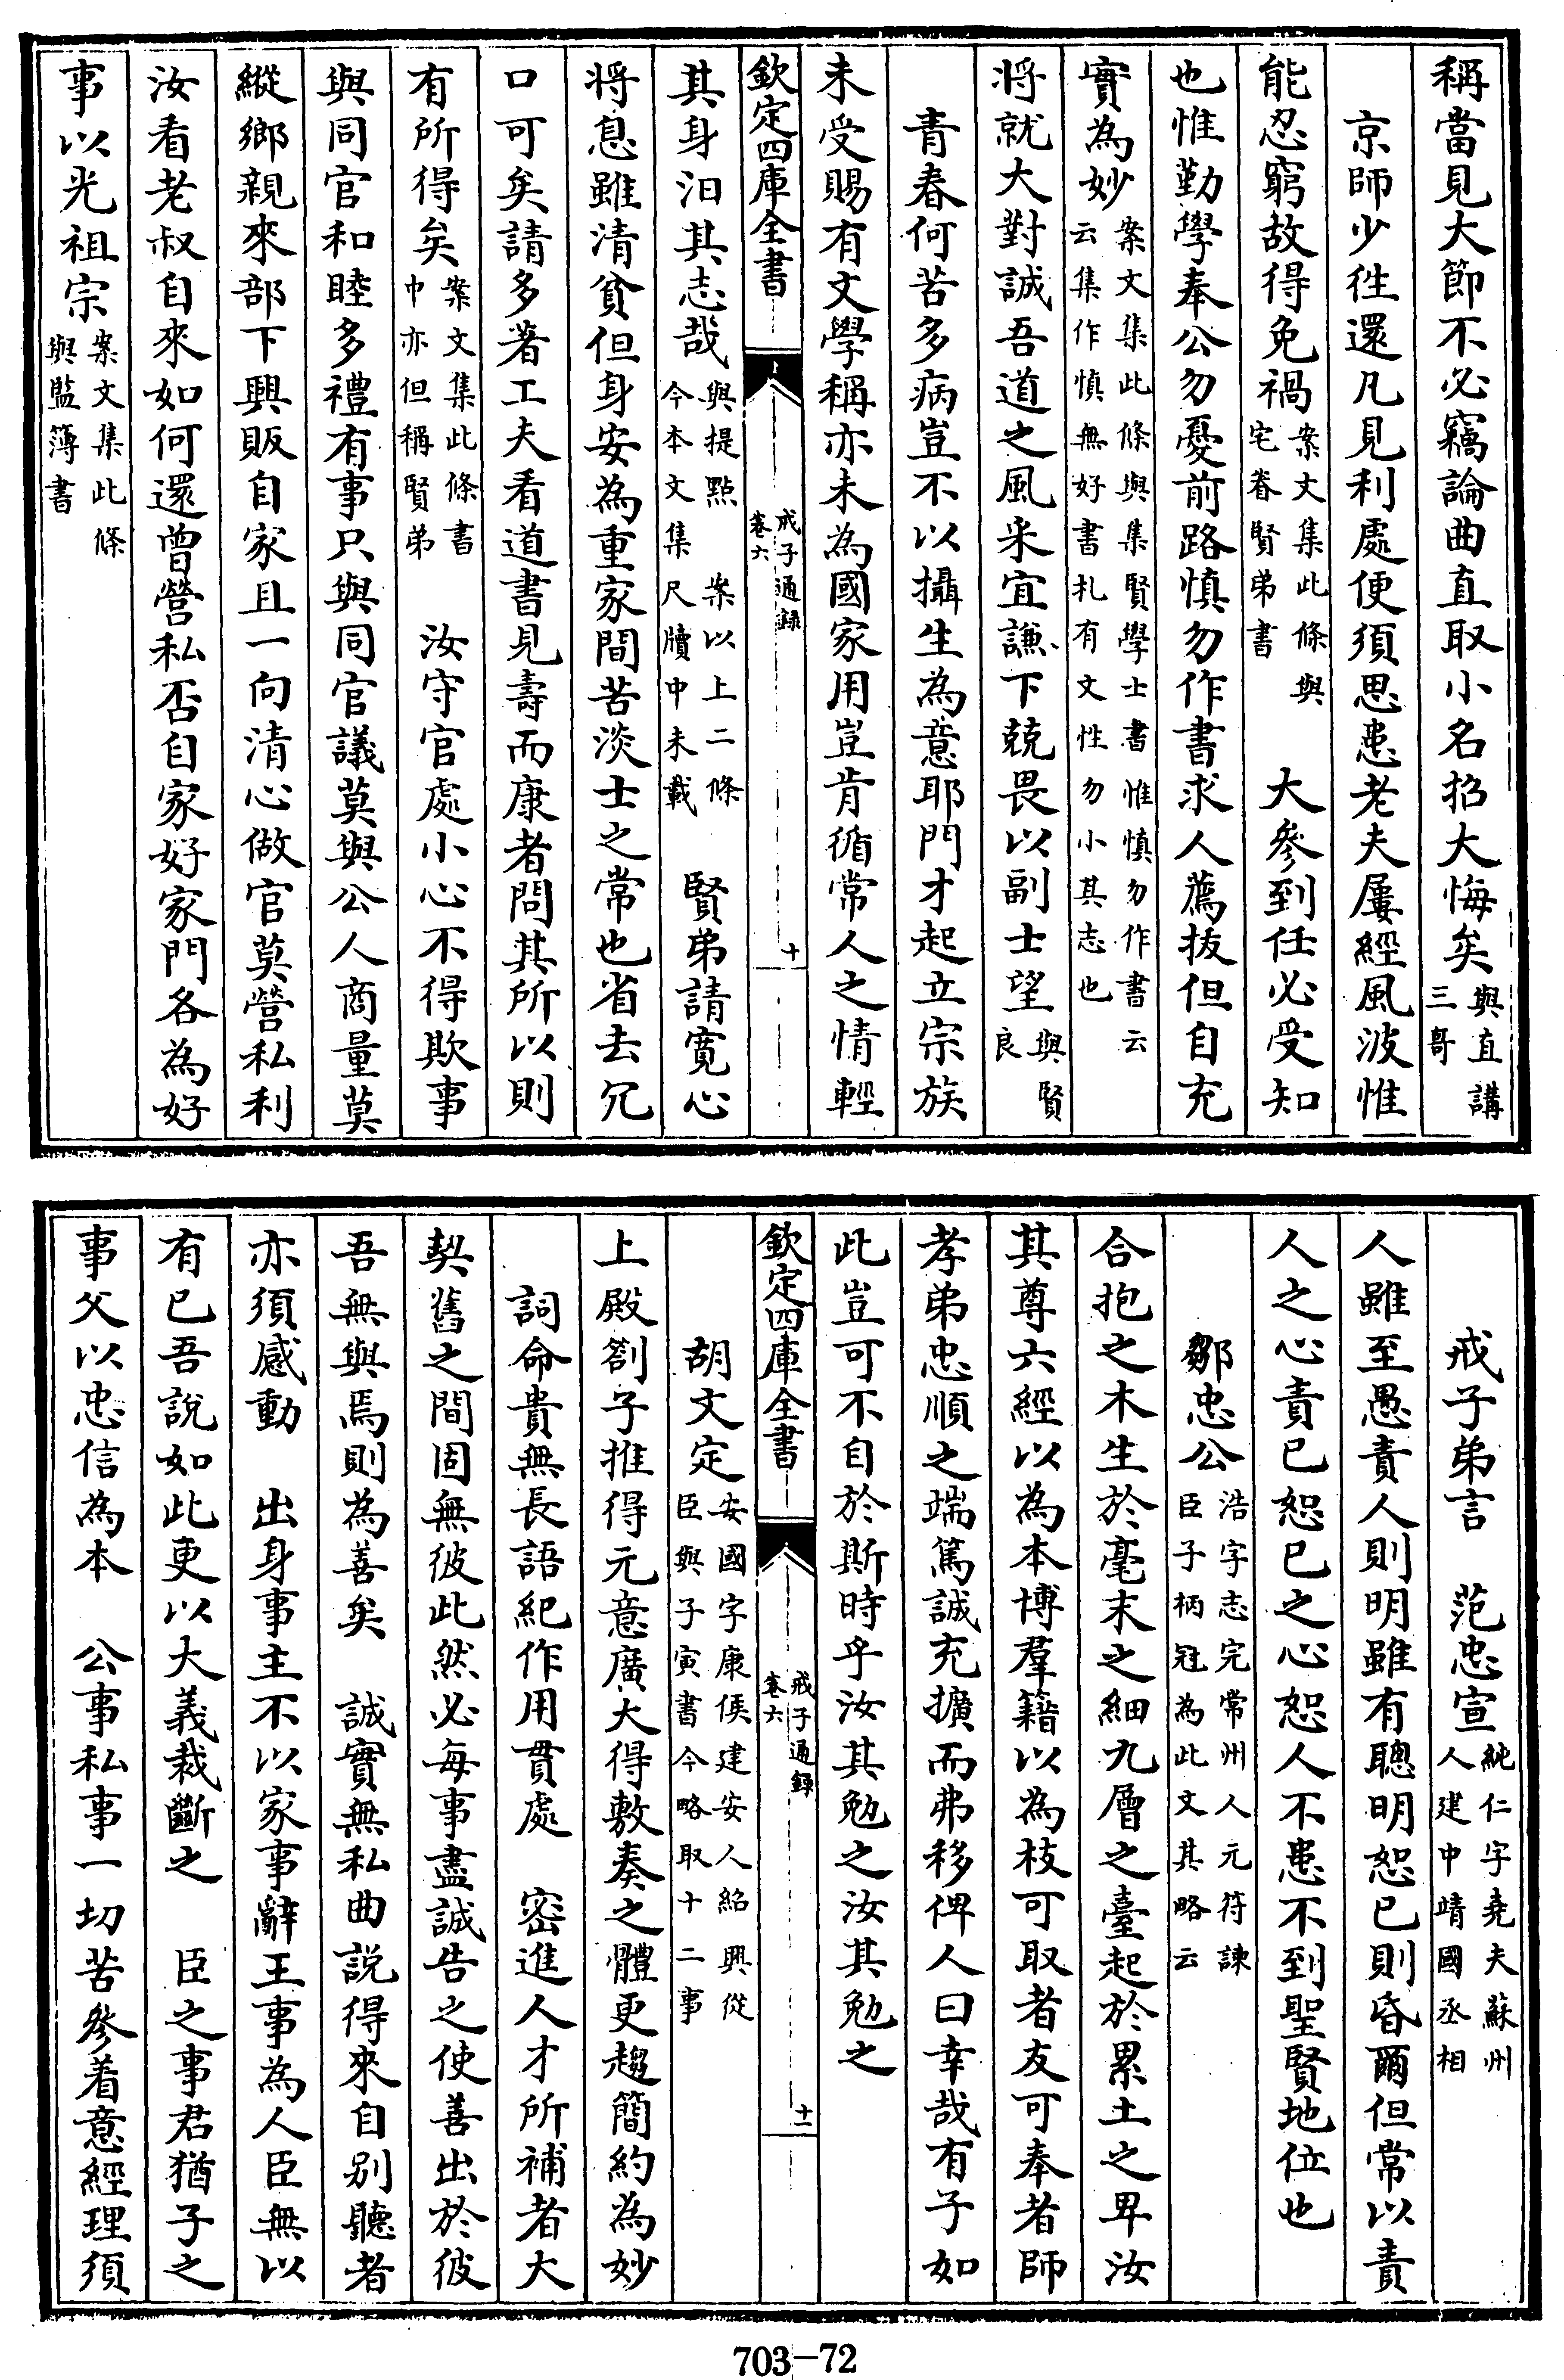 稱當見大節不必竊論曲直取小名招大悔矣與直講三哥
京師少徃還凡見利處便須思患老夫屢經風波惟
能忍窮故得免禍案文集此條與宅眷賢弟書　大參到任必受知
也惟勤學奉公勿憂前路慎勿作書求人薦拔但自充
實為妙案文集此條與集賢學士書惟慎勿作書云云集作慎無好書札有文性勿小其志也
將就大對誠吾道之風采宜謙下兢畏以副士望與賢良
青春何苦多病豈不以攝生為意耶門才起立宗族
未受賜有文學稱亦未為國家用豈肯循常人之情輕
欽定四庫全書　戒子通錄卷六　十
其身汩其志哉與提點　案以上二條今本文集尺牘中未載　賢弟請寬心
將息雖清貧但身安為重家間苦淡士之常也省去冗
口可矣請多著工夫看道書見壽而康者問其所以則
有所得矣案文集此條書中亦但稱賢弟　汝守官處小心不得欺事
與同官和睦多禮有事只與同官議莫與公人商量莫
縱鄉親來部下興販自家且一向清心做官莫營私利
汝看老叔自來如何還曾營私否自家好家門各為好
事以光祖宗案文集此條與監簿書
戒子弟言　范忠宣純仁字堯夫蘇州人建中靖國丞相
人雖至愚責人則明雖有聰明恕已則昏爾但常以責
人之心責已恕已之心恕人不患不到聖賢地位也
鄒忠公浩字志完常州人元符諫臣子柄冠為此文其略云
合抱之木生於毫末之細九層之臺起於累土之卑汝
其尊六經以為本博羣籍以為枝可取者友可奉者師
孝弟忠順之端篤誠充擴而弗移俾人曰幸哉有子如
此豈可不自於斯時乎汝其勉之汝其勉之
欽定四庫全書　戒子通錄卷六　十一
胡文定安國字康侯建安人紹興從臣與子寅書今略取十二事
上殿劄子推得元意廣大得敷奏之體更趨簡約為妙
詞命貴無長語紀作用貫處　密進人才所補者大
契舊之間固無彼此然必每事盡誠告之使善出於彼
吾無與焉則為善矣　誠實無私曲説得來自别聽者
亦須感動　出身事主不以家事辭王事為人臣無以
有已吾說如此更以大義裁斷之　臣之事君猶子之
事父以忠信為本　公事私事一切苦參着意經理須
703—72